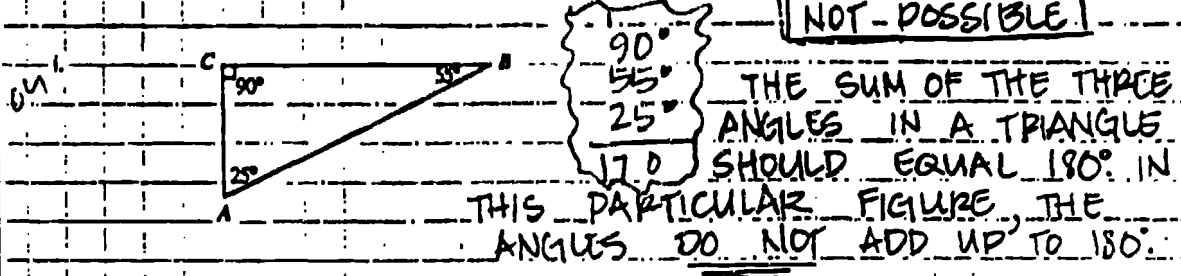 NOT-POSSIBLE
1.
C
90°
55°
B
25°
A
90°
55°
25°
170
THE SUM OF THE THREE
ANGLES IN A TRIANGLE
SHOULD EQUAL 180°. IN
THIS PARTICULAR FIGURE, THE
ANGLES DO NOT ADD UP TO 180°.